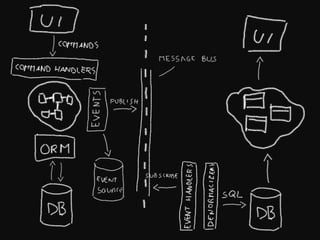 UI
COMMANDS
COMMAND HANDLERS
EVENTS
PUBLISH
ORM
EVENT
SOURCE
DB
MESSAGE BUS
SUBSCRIBE
EVENT HANDLERS
DENORMALIZER
SQL
UI
DB